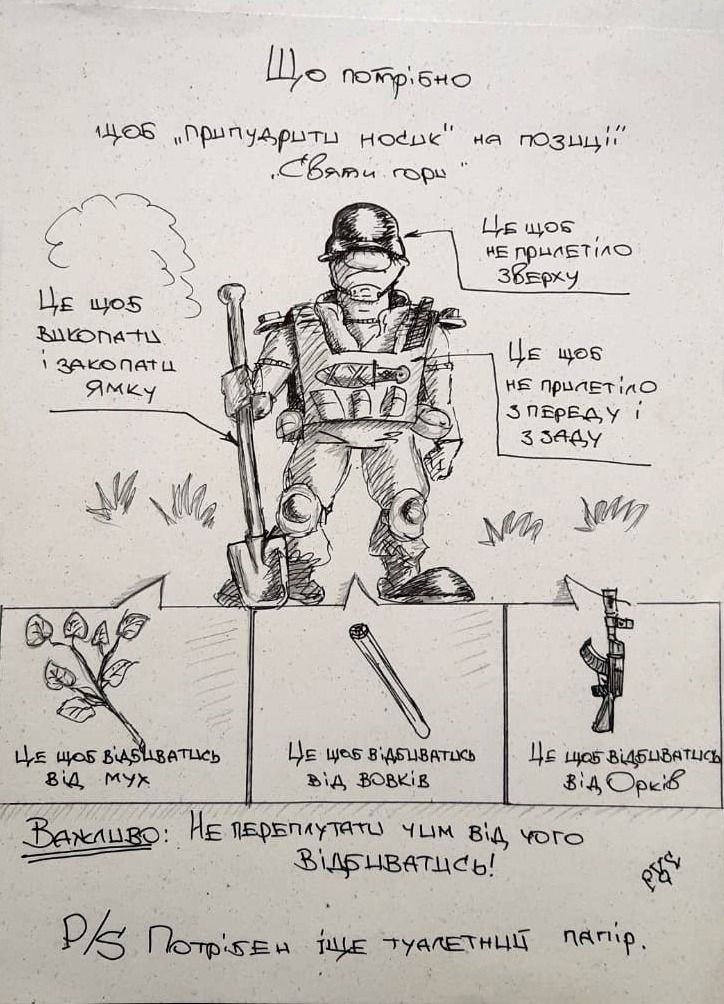 Що потрібно
щоб „припудрити носик" на позиції
„Святи гори"
Це щоб
не прилетіло
зверху
Це щоб
викопати
і закопати
ямку
Це щоб
не прилетіло
з переду і
з заду
Це щоб відбиватись
від мух
Це щоб відбиватись
від вовків
Це щоб відбиватись
від Орків
Важливо: Не переплутати чим від чого
відбиватись!
P/S Потрібен іще туалетний папір.